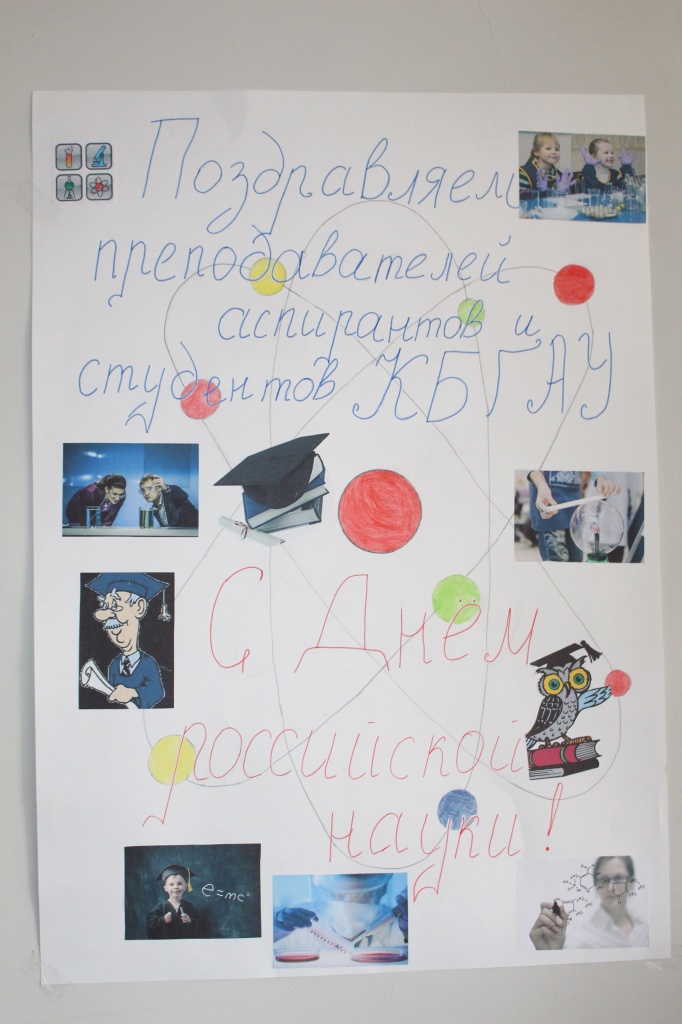 Поздравляем
преподавателей
аспирантов и
студентов КБГАУ
С Днём
российской
науки!
e=mc²